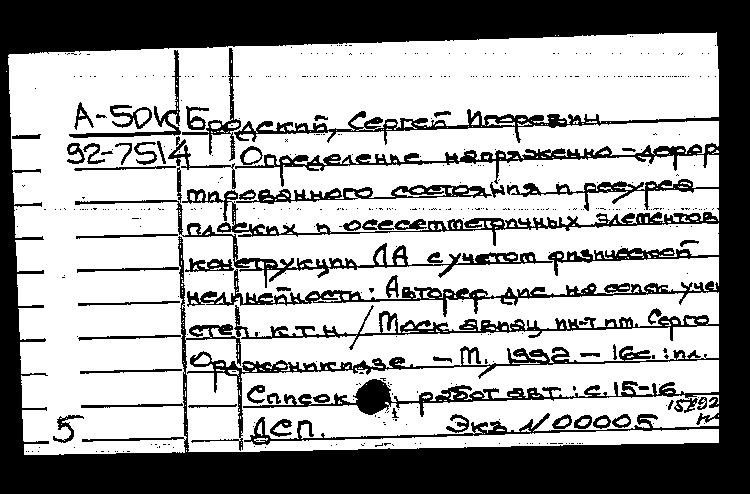 А-50К Бродский, Сергей Игоревич
92-7514 Определение напряженно-дефор
мированного состояния и ресурса
плоских и осесимметричных элементов
конструкции ЛА с учетом физической
нелинейности: Автореф. дис. на соиск. учен
степ. к.т.н. / Моск. авиац. ин-т им. Серго
Орджоникидзе. - М., 1992. - 16с.: ил.
Список работ авт.: с. 15-16.
5 ДСП. Экз. N 00005